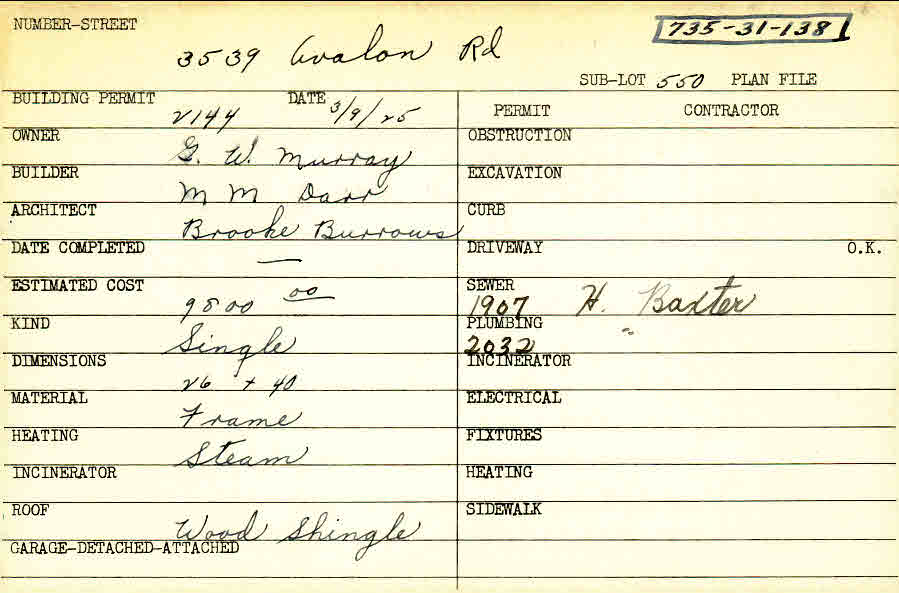 NUMBER-STREET
735-31-138
3539 Avalon Rd
SUB-LOT 550 PLAN FILE
BUILDING PERMIT 2144 DATE 3/9/25
OWNER G. W. Murray
BUILDER M M Darr
ARCHITECT Brooke Burrows
DATE COMPLETED —
ESTIMATED COST 9800 00
KIND Single
DIMENSIONS 26 + 40
MATERIAL Frame
HEATING Steam
INCINERATOR
ROOF Wood Shingle
GARAGE-DETACHED-ATTACHED
PERMIT CONTRACTOR
OBSTRUCTION
EXCAVATION
CURB
DRIVEWAY O.K.
SEWER
1907 H. Baxter
PLUMBING "
2032
INCINERATOR
ELECTRICAL
FIXTURES
HEATING
SIDEWALK